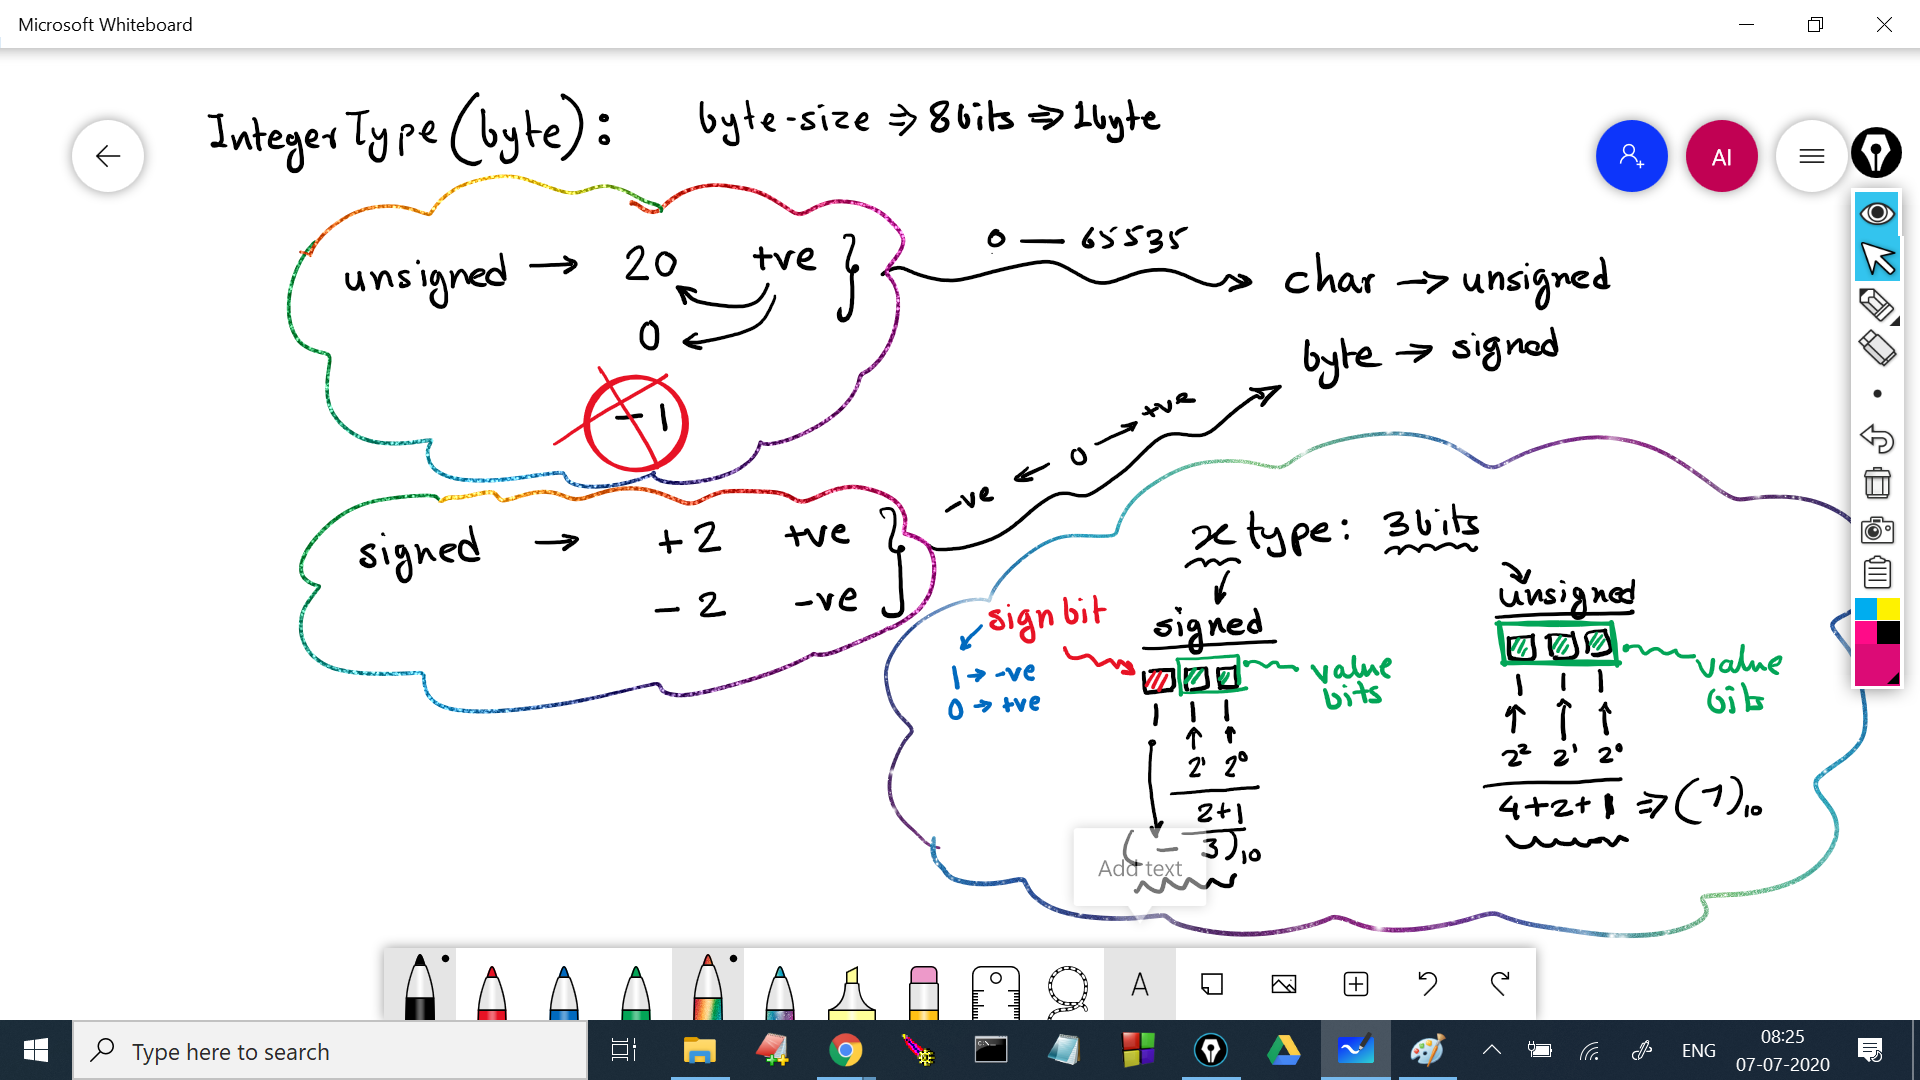 Microsoft Whiteboard
Integer Type (byte): byte-size ⇒ 8bits ⇒ 1byte
AI
unsigned → 20 +ve }
0
-1
0 — 65535
char → unsigned
byte → signed
-ve ← 0 → +ve
signed → +2 +ve }
- 2 -ve
x type: 3bits
sign bit
1 → -ve
0 → +ve
signed
value
bits
1 1 1
2¹ 2⁰
2+1
(- 3)10
unsigned
value
bits
1 1 1
2² 2¹ 2⁰
4+2+1 ⇒ (7)10
Add text
A
Type here to search
ENG
08:25
07-07-2020